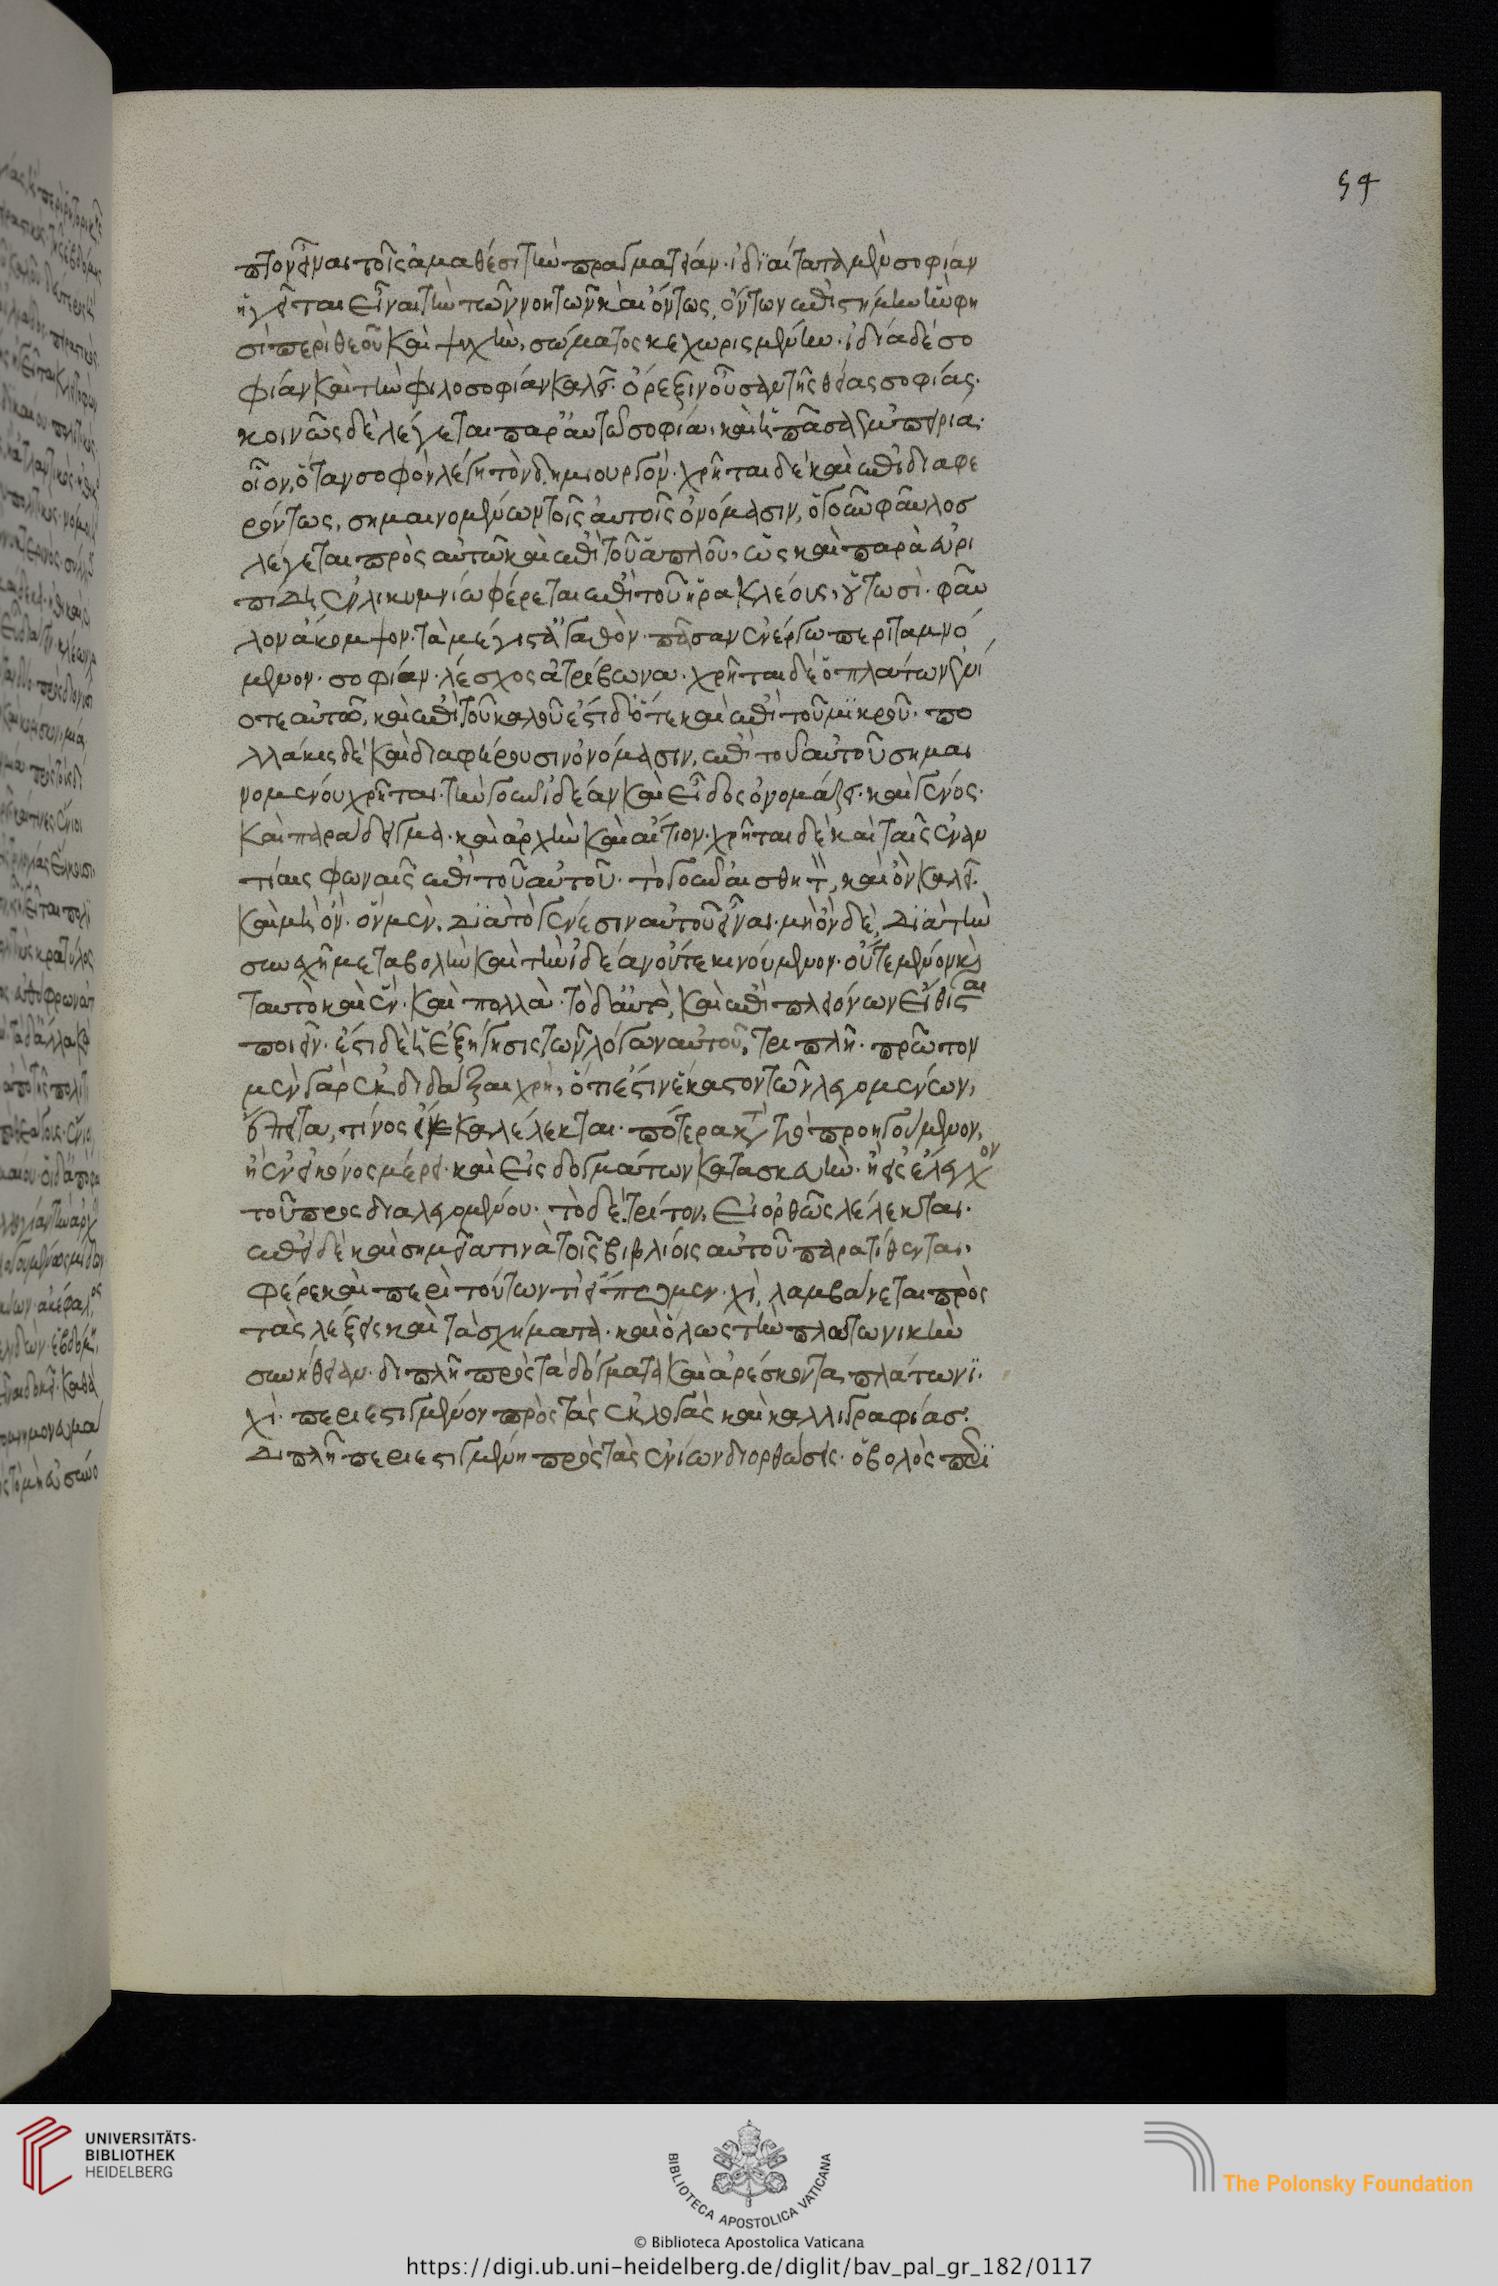 54
πτον εἶναι τοῖς ἀμαθέσι τὴν πραγματείαν. ἰδιαίτατα μὲν σοφίαν
ἡγεῖται εἶναι τὴν τῶν νοητῶν καὶ ὄντως ὄντων ἐπιστήμην ἥν φη
σὶ περὶ θεοῦ καὶ ψυχὴν, σώματος κεχωρισμένην. ἰδίᾳ δὲ σο
φίαν καὶ τὴν φιλοσοφίαν καλεῖ. ὄρεξιν οὖσαν τῆς θείας σοφίας.
κοινῶς δὲ λέγεται παρ' αὐτῷ σοφία. καὶ ἡ πᾶσα ἐμπειρία.
οἷον, ὅταν σοφὸν λέγῃ τὸν δημιουργόν. χρῆται δὲ καὶ ἐπὶ διαφε
ρόντως, σημαινομένων τοῖς αὐτοῖς ὀνόμασιν, ὁ γοῦν φαῦλος
λέγεται πρὸς αὐτῶν καὶ ἐπὶ τοῦ ἁπλοῦ. ὡς καὶ παρὰ εὐρι
πίδη ἐν λικυμνίω φέρεται ἐπὶ τοῦ ἡρακλέους, οὕτωσὶ. φαῦ
λον ἄκομψον. τὰ μέγιστ' ἀγαθὸν. πᾶσαν ἐν ἔργω περιταμνό
μενον. σοφίαν. λέσχος ἀτρίβωνα. χρῆται δὲ ὁ πλάτων ἐνί
οτε αὐτῶ, καὶ ἐπὶ τοῦ καλοῦ ἔστι δ' ὅτε καὶ ἐπὶ τοῦ μικροῦ. πο
λλάκις δὲ καὶ διαφέρουσιν ὀνόμασιν, ἐπὶ τοῦ αὐτοῦ σημαι
νομένου χρῆται. τὴν γοῦν ἰδέαν καὶ εἶδος ὀνομάζει. καὶ γένος.
καὶ παράδειγμα. καὶ ἀρχὴν καὶ αἴτιον. χρῆται δὲ καὶ ταῖς ἐναν
τίαις φωναῖς ἐπὶ τοῦ αὐτοῦ. τὸ γοῦν αἰσθητὸν, καὶ ὂν καλεῖ.
καὶ μὴ ὄν. ὂν μὲν, διὰ τὸ γένεσιν αὐτοῦ εἶναι. μὴ ὂν δὲ, διὰ τὴν
συνεχῆ μεταβολὴν καὶ τὴν ἰδέαν οὔτε κινούμενον. οὔτε μένον καὶ
ταυτὸ καὶ ἕν. καὶ πολλὰ. τὸ δ' αὐτὸ, καὶ ἐπὶ πλειόνων εἴθισται
ποιεῖν. ἔστι δὲ ἡ ἐξήγησις τῶν λόγων αὐτοῦ, τριπλῆ. πρῶτον
μὲν γὰρ ἐκδιδάξαι χρὴ, ὅτι ἐστὶν ἕκαστον τῶν λεγομένων,
ἔπειτα, τίνος ἕνεκα λέλεκται. πότερα κατὰ προηγούμενον,
ἢ ἐν εἰκόνος μέρει. καὶ εἰς δογμάτων κατασκευὴν. ἢ εἰς ἔλεγχον
τοῦ προσδιαλεγομένου. τὸ δὲ τρίτον, εἰ ὀρθῶς λέλεκται.
ἐπεὶ δὲ καὶ σημεῖά τινὰ τοῖς βιβλίοις αὐτοῦ παρατίθενται,
φέρε καὶ περὶ τούτων τὶ εἴπωμεν. χῖ, λαμβάνεται πρὸς
τὰς λέξεις καὶ τὰ σχήματα. καὶ ὅλως τὴν πλατωνικὴν
συνήθειαν. διπλῆ πρὸς τὰ δόγματα καὶ ἀρέσκοντα πλάτωνι.
χῖ. περιεστιγμένον πρὸς τὰς ἐκλογὰς καὶ καλλιγραφίας.
διπλῆ περιεστιγμένη πρὸς τὰς ἐνίων διορθώσεις. ὀβολὸς περι
UNIVERSITÄTS-
BIBLIOTHEK
HEIDELBERG
BIBLIOTECA APOSTOLICA VATICANA
The Polonsky Foundation
© Biblioteca Apostolica Vaticana
https://digi.ub.uni-heidelberg.de/diglit/bav_pal_gr_182/0117